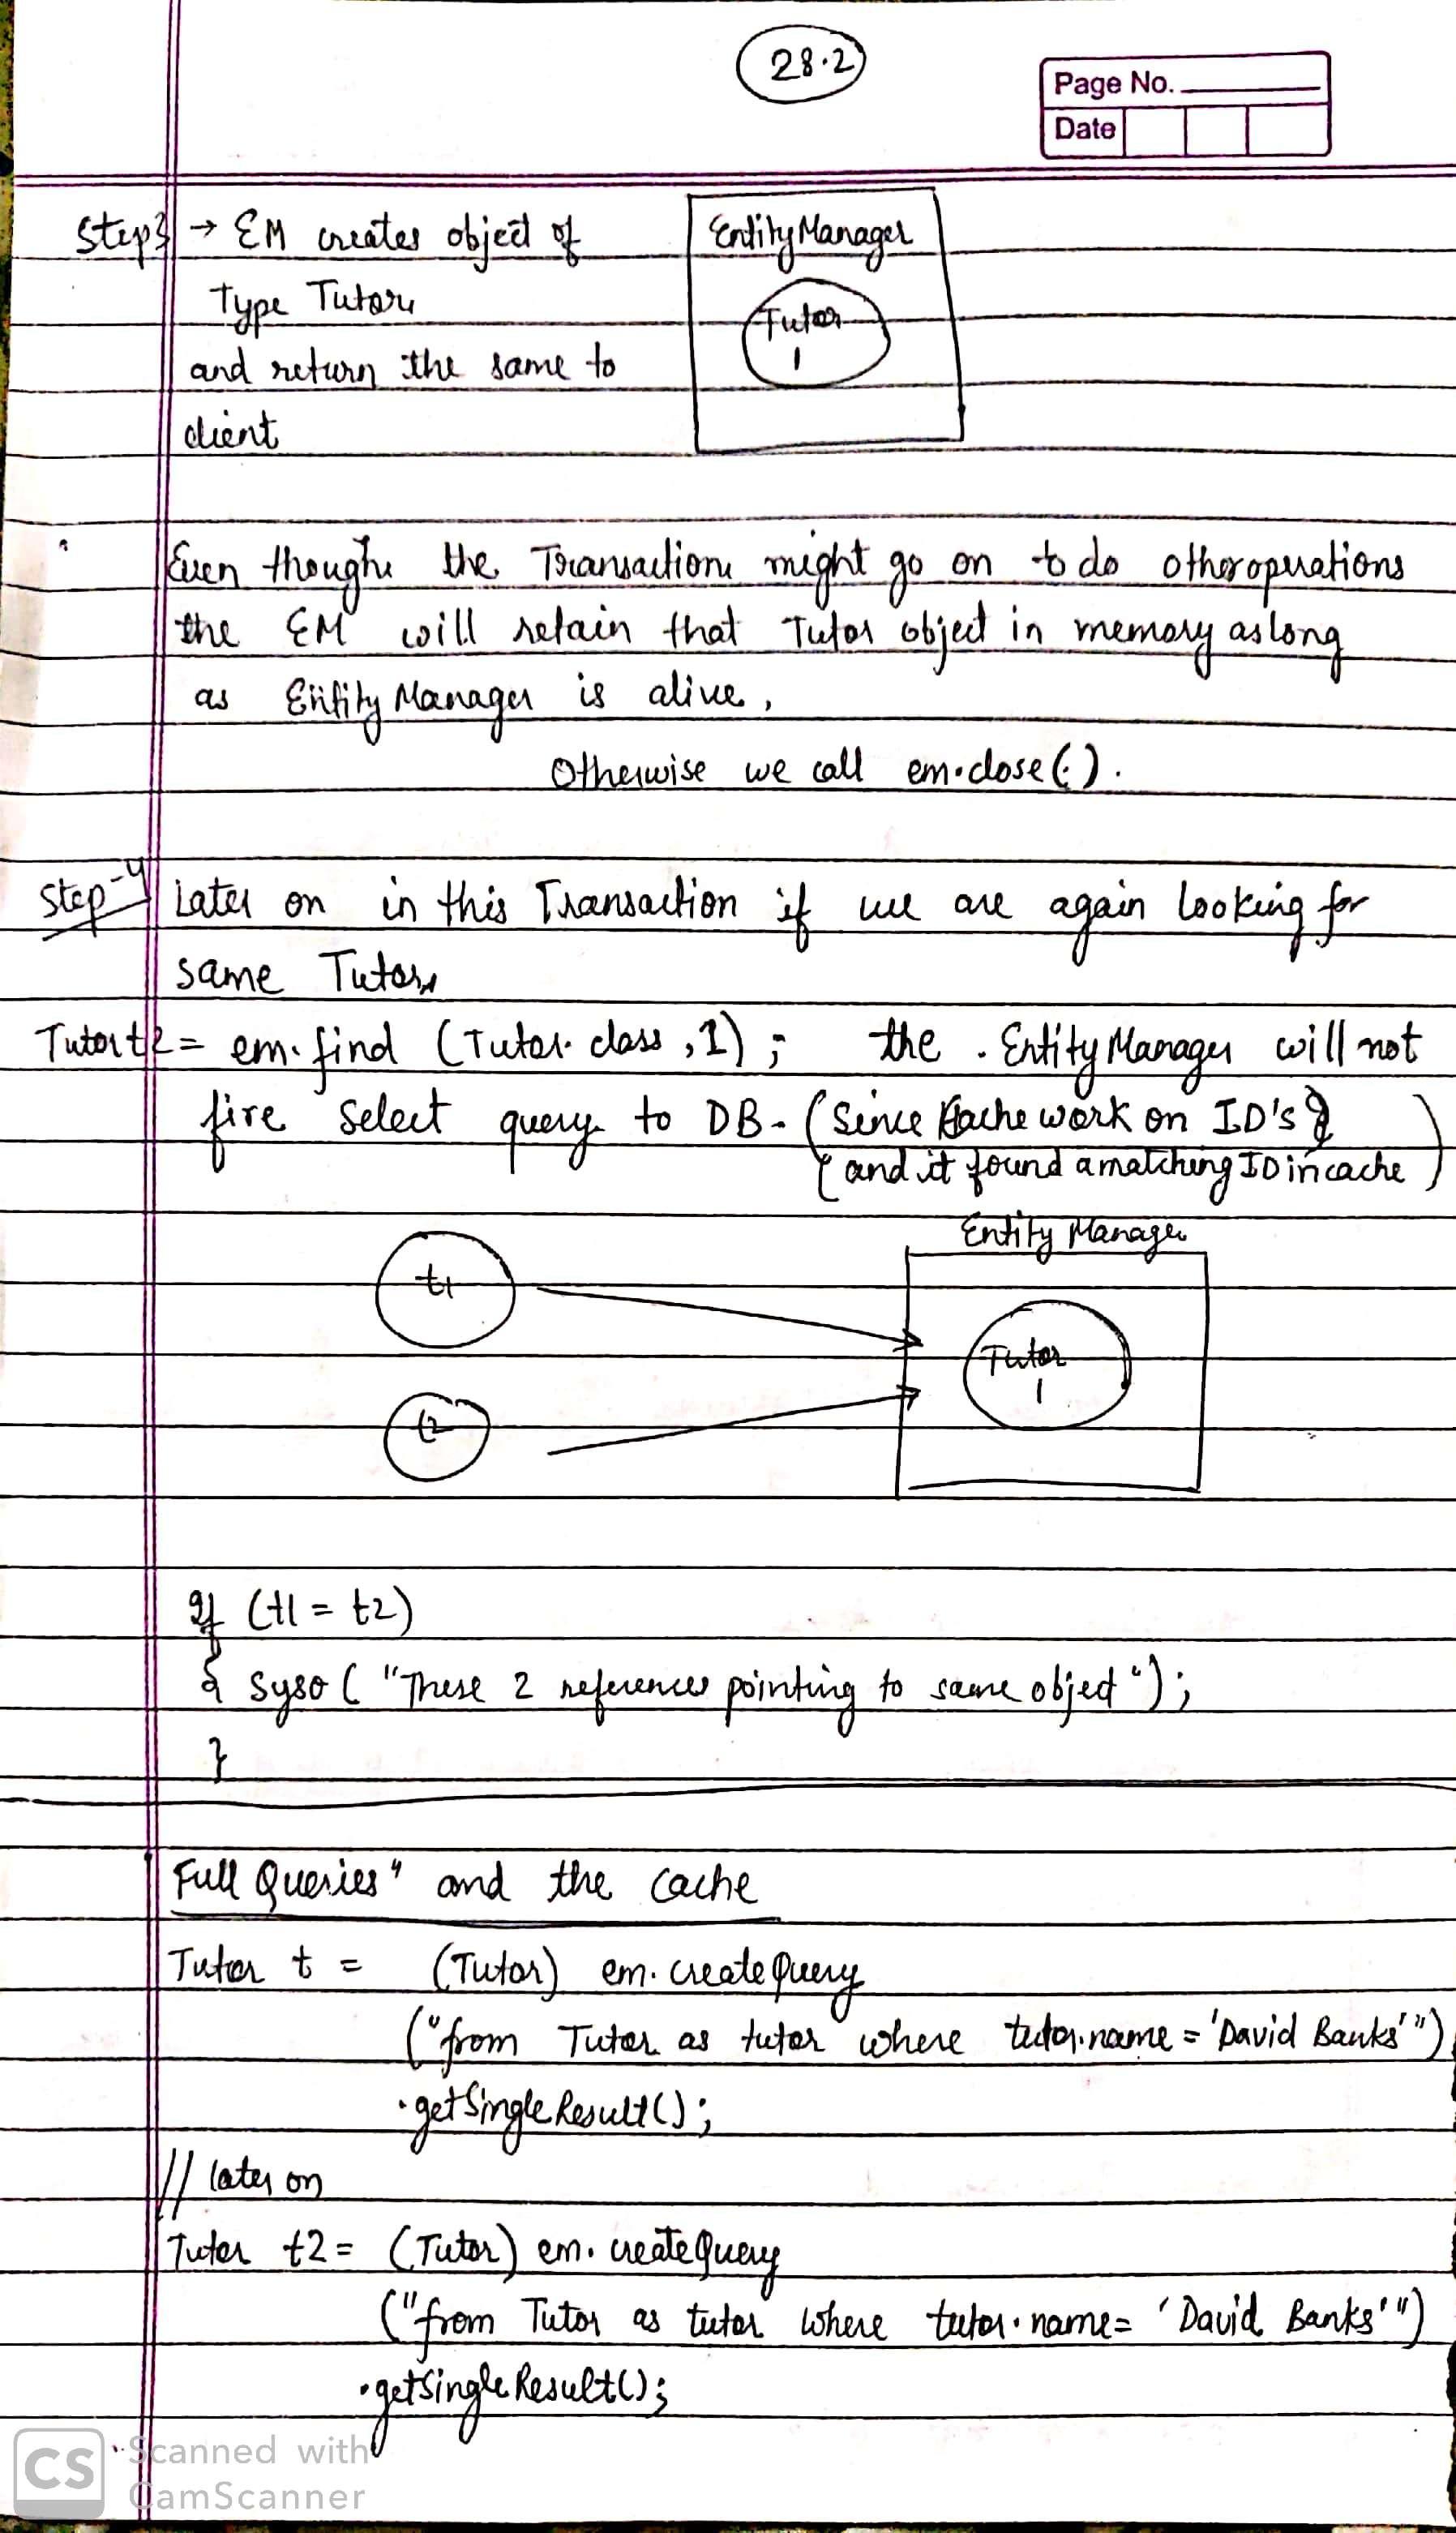 28.2
Page No.
Date
Step3 → EM creates object of
Type Tutor
and return the same to
client
EntityManager
Tutor
1
Even though the Transaction might go on to do other operations
the EM will retain that Tutor object in memory as long
as Entity Manager is alive,
Otherwise we call em.close().
Step-4 Later on in this Transaction if we are again looking for
same Tutor
Tutor t2 = em.find (Tutor.class, 1); the Entity Manager will not
fire select query to DB. (Since Cache work on ID's &
and it found a matching ID in cache)
Entity Manager
t1
Tutor
1
t2
If (t1 = t2)
{ syso ( "These 2 references pointing to same object");
}
Full Queries" and the cache
Tutor t = (Tutor) em.createQuery
("from Tutor as tutor where tutor.name = 'David Banks'")
.getSingleResult();
// later on
Tutor t2 = (Tutor) em.createQuery
("from Tutor as tutor where tutor.name = 'David Banks'")
.getSingleResult();
CS Scanned with
CamScanner